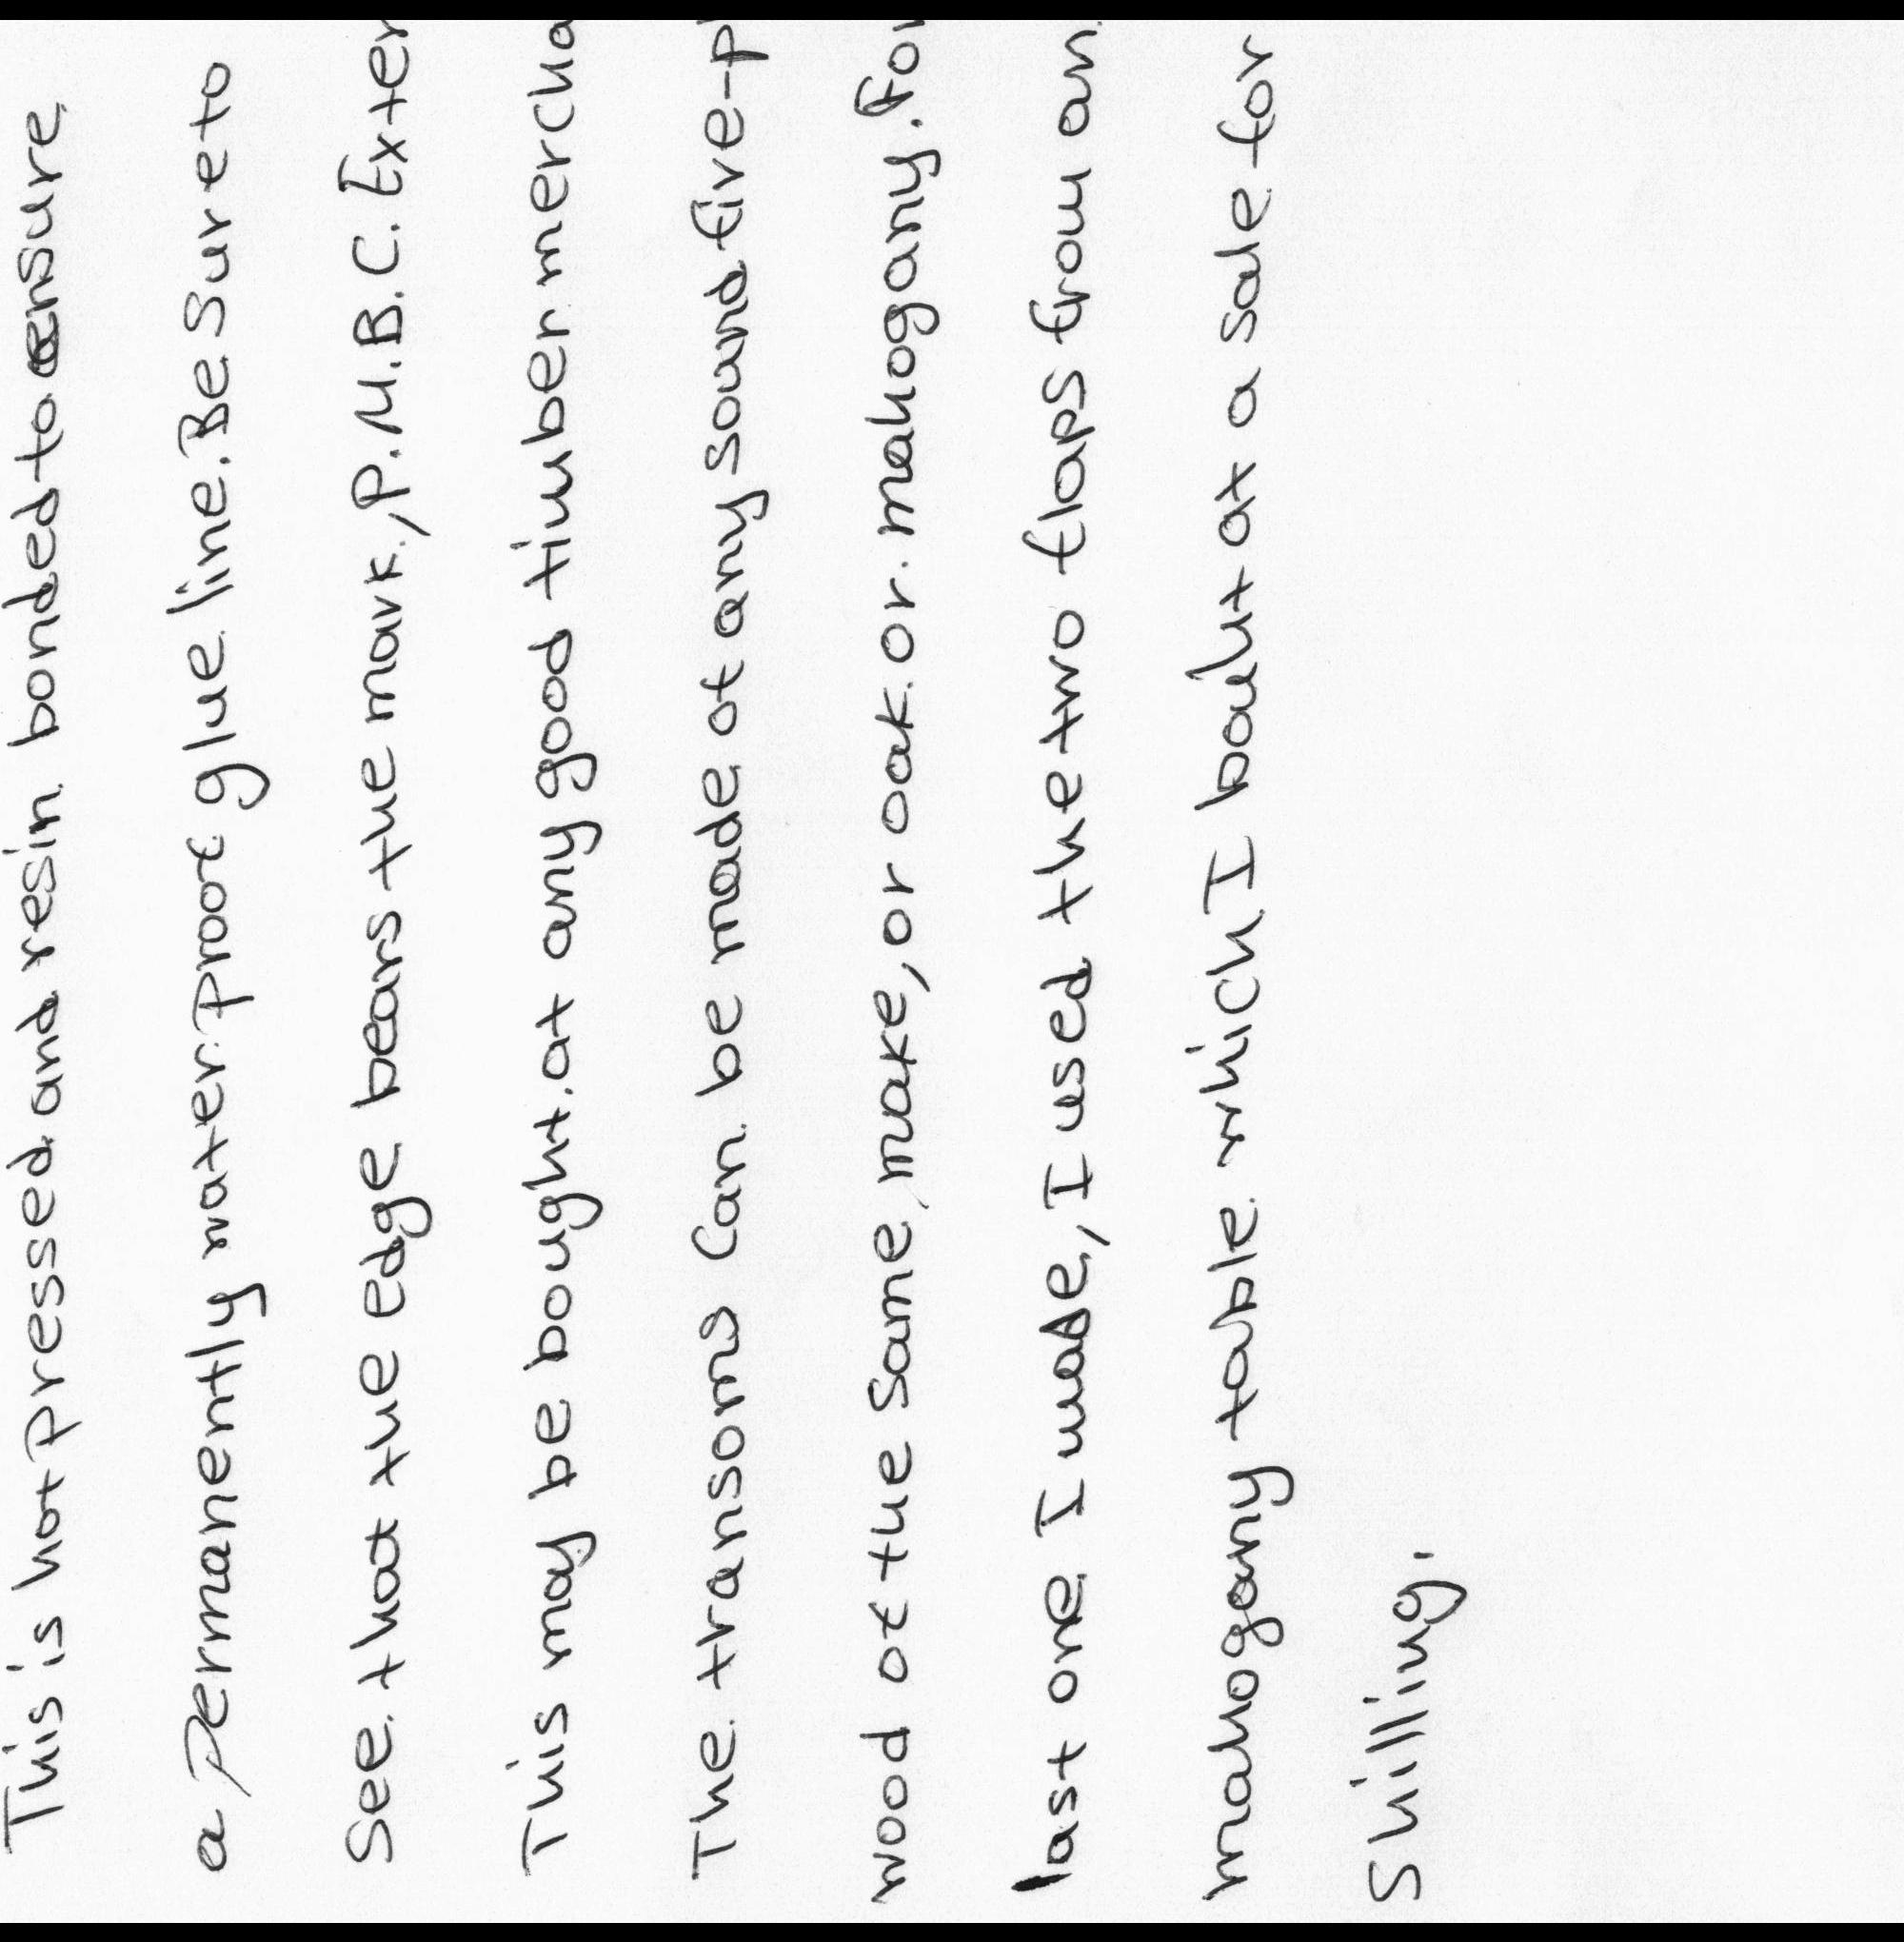 This is hot pressed and resin bonded to ensure
a permanently waterproof glue line. Be Sure to
See that the edge bears the mark, P.M.B.C. Exter
This may be bought at any good timber mercha
The transoms Can be made of any sound five-p
wood of the Same make, or oak or mahogany. For
last one I made, I used the two flaps from an
mahogany table which I boulut at a sale for
Shilling.